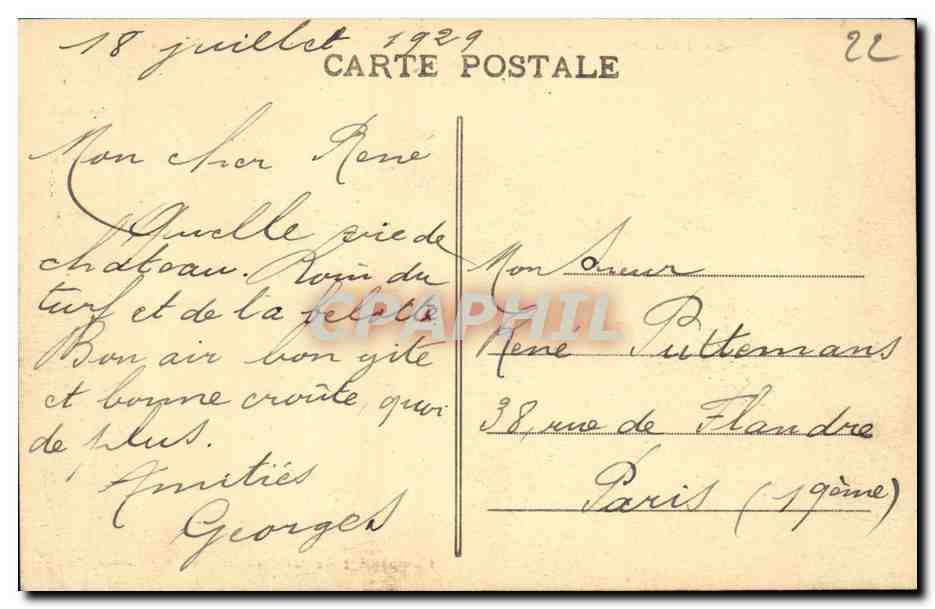 18 juillet 1929
22
CARTE POSTALE
Mon cher René
Quelle vie de
château. Loin du
turf et de la belotte
Bon air bon gite
et bonne croûte, quoi
de plus.
Amitiés
Georges
Monsieur
René Puttemans
38, rue de Flandre
Paris (19ème)
CPAPHIL